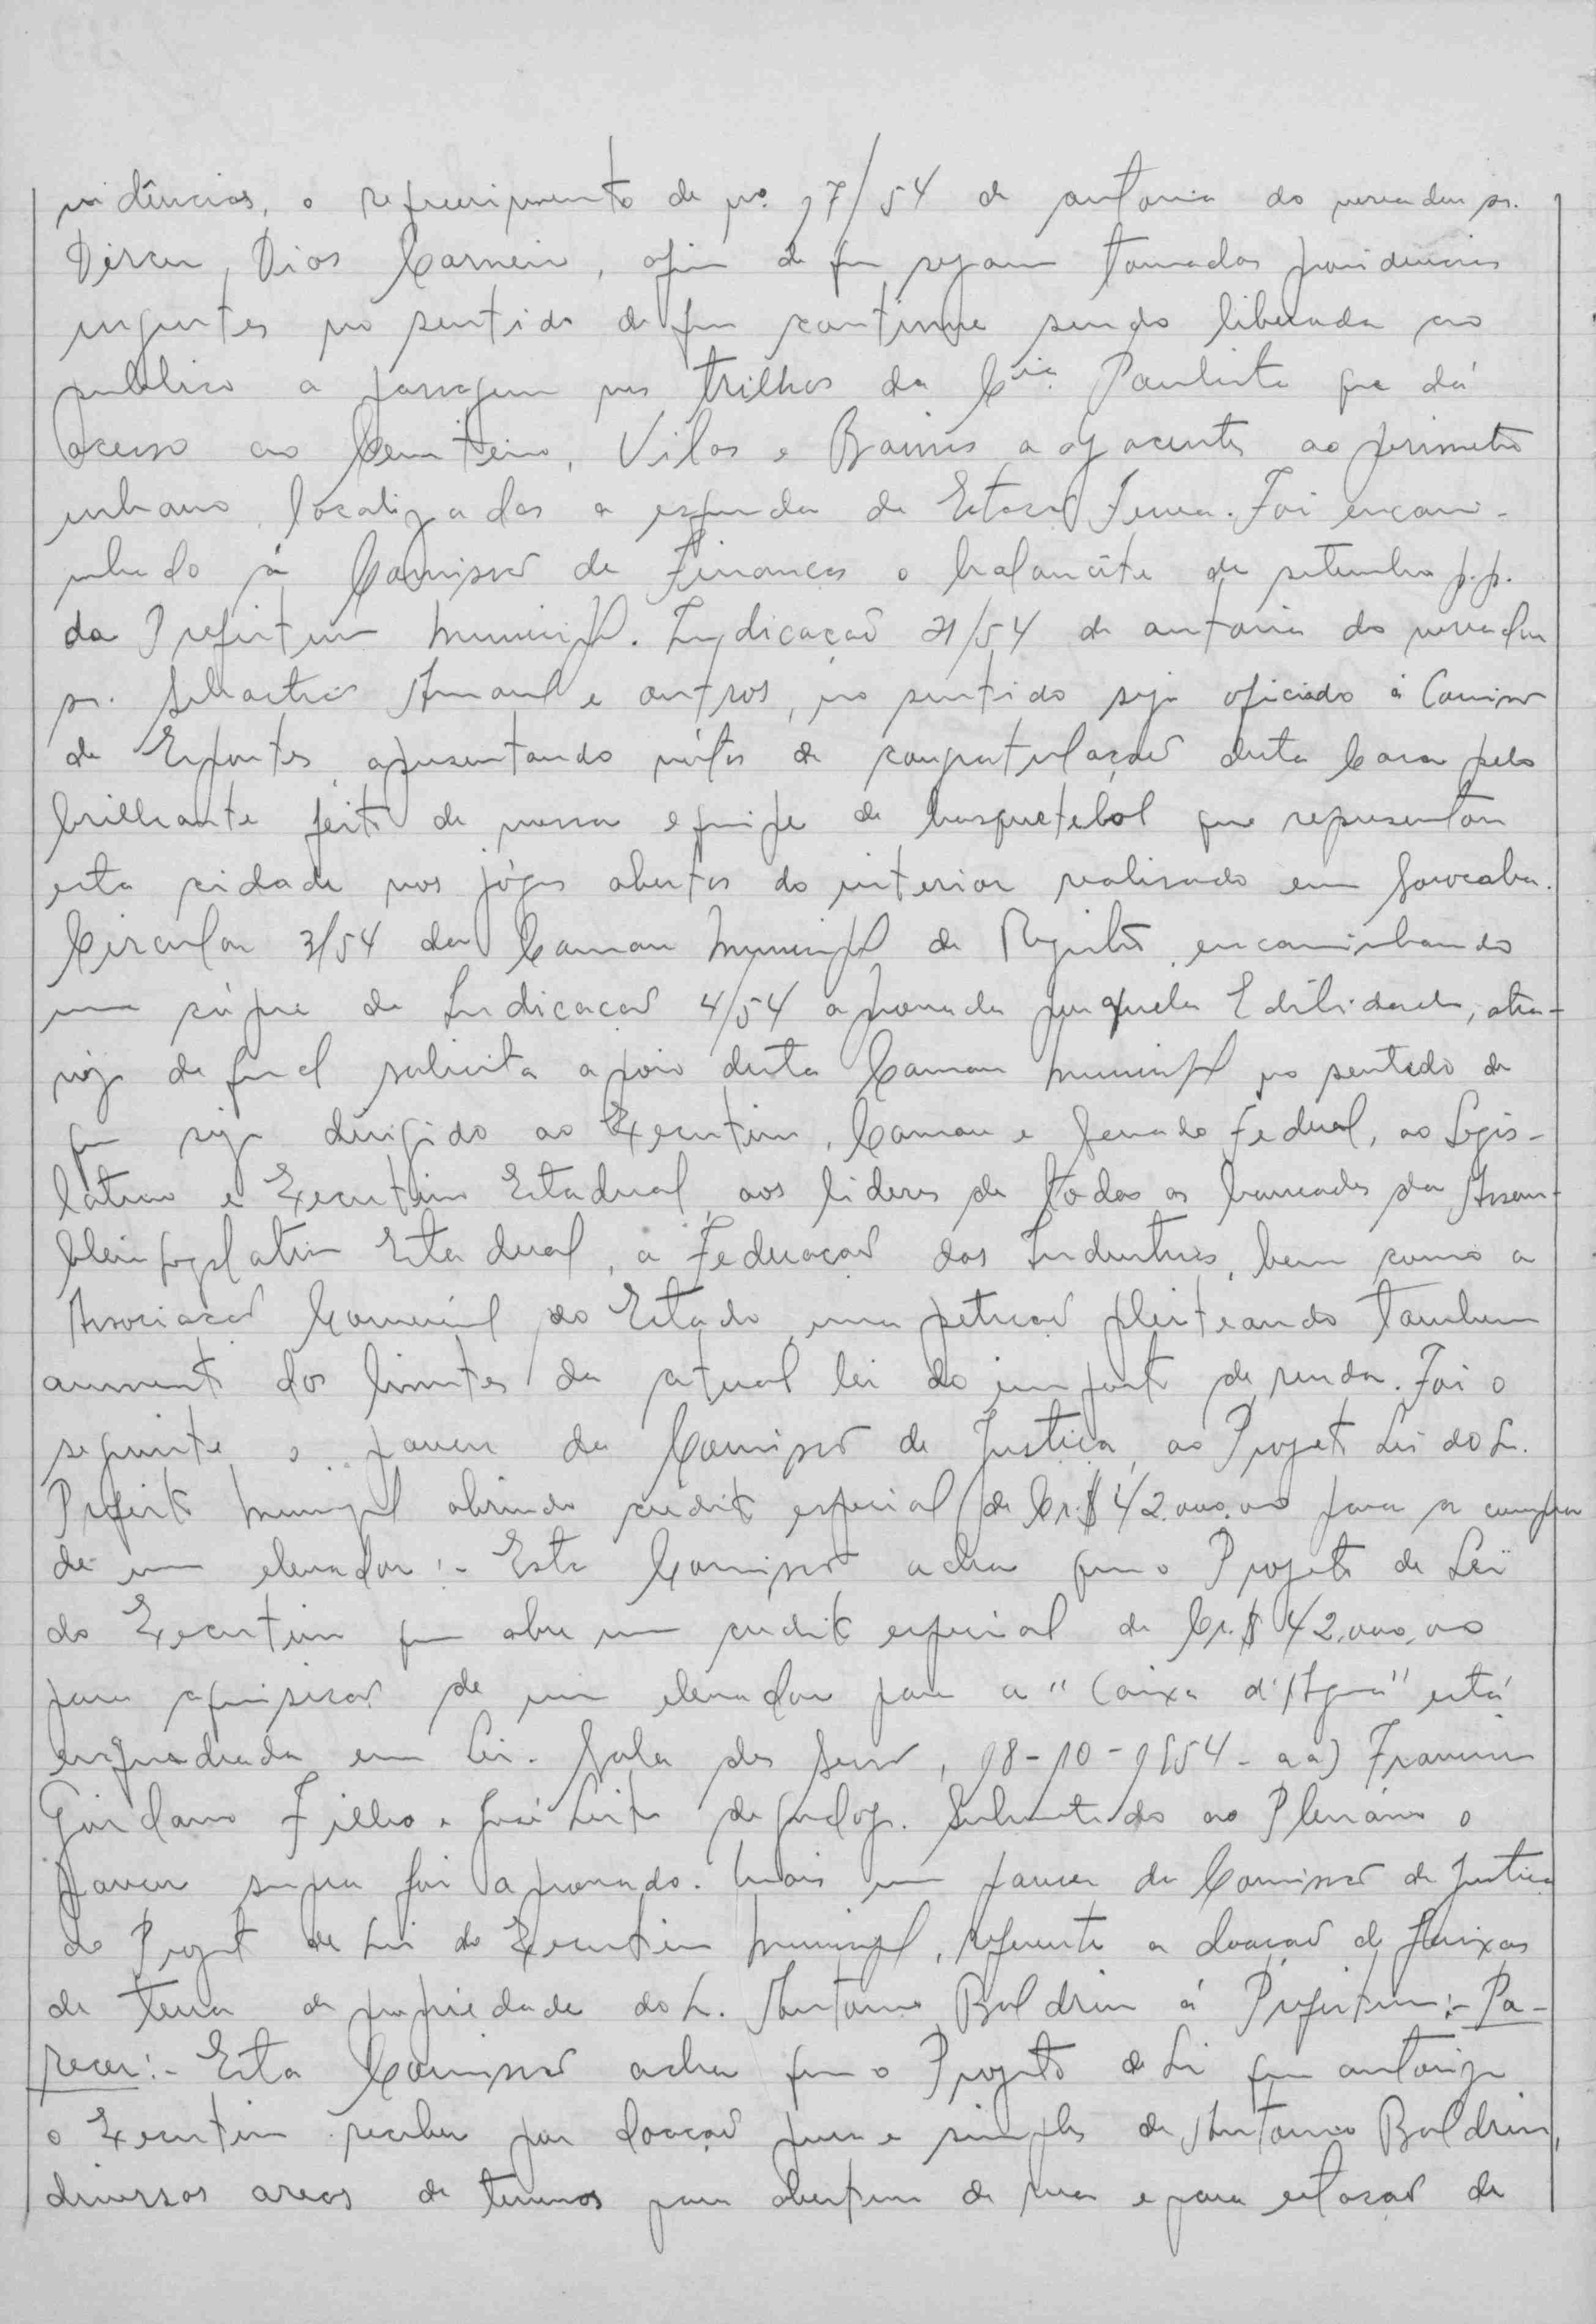 vidências, o requerimento de nº. 17/54 de autoria do vereador sr.
Dirceu Dias Carneiro, afim de que sejam tomadas providencias
urgentes no sentido de que continue sendo liberada ao
publico a passagem nos trilhos da Cia. Paulista que dá
acesso ao Cemiterio, Vilas e Bairros adjacentes ao perimetro
urbano, localizados a esquerda da Estação Ferrea. Foi encami-
nhado á Comissão de Finanças o balancête de setembro p.p.
da Prefeitura Municipal. Indicação 21/54 de autoria do vereador
sr. Sebastião Amaral e outros, no sentido seja oficiado á Comissão
de Esportes apresentando vótos de congratulações desta Casa pelo
brilhante feito de nossa equipe de basquetebol que representou
esta cidade nos jógos abertos do interior realisado em Sorocaba.
Circular 3/54 da Camara Municipal de Registro, encaminhando
uma cópia da Indicação 4/54 aprovada por aquela Edilidade, atra-
véz da qual solicita apoio desta Camara Municipal no sentido de
que seja dirigido ao Executivo, Camara e Senado Federal, ao Legis-
lativo e Executivo Estadual, aos lideres de todas as bancadas da Assem-
bleia Legislativa Estadual, a Federação das Industrias, bem como a
Associação Comercial do Estado, uma petição pleiteando tambem
aumento dos limites da atual lei do imposto de renda. Foi o
seguinte o parecer da Comissão de Justiça, ao Projeto Lei do Sr.
Prefeito Municipal abrindo credito especial de Cr.$ 42.000,00 para a compra
de um elevador:- Esta Comissão acha que o Projeto de Lei
do Executivo que abre um credito especial de Cr.$ 42.000,00
para aquisição de um elevador para a "Caixa d'Agua" está
enquadrada em Lei. Sala das Sessões, 18-10-1954 - aa) Francisco
Giordano Filho e José Leite de Godoy. Submetido ao Plenário o
parecer supra foi aprovado. Mais um parecer da Comissão de Justiça
ao Projeto de Lei do Executivo Municipal, referente a doação de faixas
de terra de propriedade do Sr. Antonio Baldrin á Prefeitura:- Pa-
recer:- Esta Comissão acha que o Projeto de Lei que autoriza
o Executivo receber por doação pura e simples de Antonio Baldrin,
diversas areas de terrenos para abertura de rua e para estação de